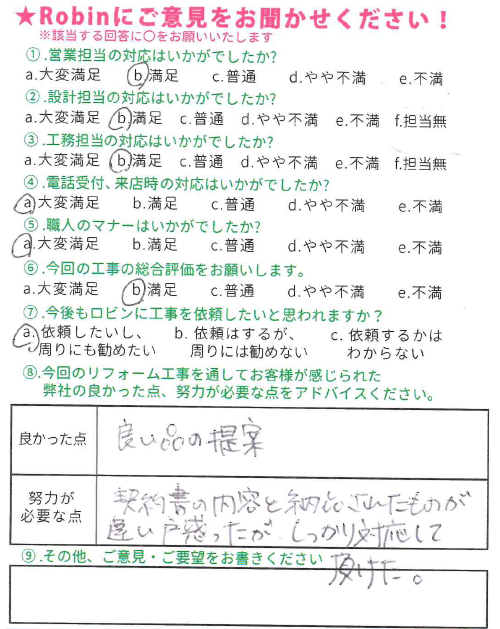 ★Robinにご意見をお聞かせください！
※該当する回答に〇をお願いいたします
①.営業担当の対応はいかがでしたか?
a.大変満足 b.満足 c.普通 d.やや不満 e.不満
②.設計担当の対応はいかがでしたか?
a.大変満足 b.満足 c.普通 d.やや不満 e.不満 f.担当無
③.工務担当の対応はいかがでしたか?
a.大変満足 b.満足 c.普通 d.やや不満 e.不満 f.担当無
④.電話受付、来店時の対応はいかがでしたか?
a.大変満足 b.満足 c.普通 d.やや不満 e.不満
⑤.職人のマナーはいかがでしたか?
a.大変満足 b.満足 c.普通 d.やや不満 e.不満
⑥.今回の工事の総合評価をお願いします。
a.大変満足 b.満足 c.普通 d.やや不満 e.不満
⑦.今後もロビンに工事を依頼したいと思われますか？
a. 依頼したいし、 b. 依頼はするが、 c. 依頼するかは
周りにも勧めたい 周りには勧めない わからない
⑧.今回のリフォーム工事を通してお客様が感じられた
弊社の良かった点、努力が必要な点をアドバイスください。
良かった点 良い品の提案
努力が
必要な点
契約書の内容と納品されたものが
違い戸惑ったが しっかり対応して
頂けた。
⑨.その他、ご意見・ご要望をお書きください